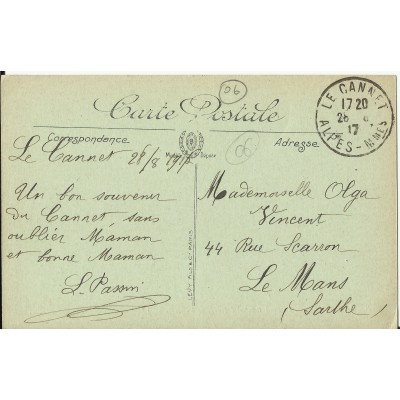 06
Carte Postale
Correspondance
Adresse
LE CANNET
17 20
26 8
17
ALPES-MMES
06
Le Cannet 26/8 1917
Un bon souvenir
du Cannet, sans
oublier Maman
et bonne Maman
Mademoiselle Olga
Vincent
44 Rue Scarron
Le Mans
(Sarthe)